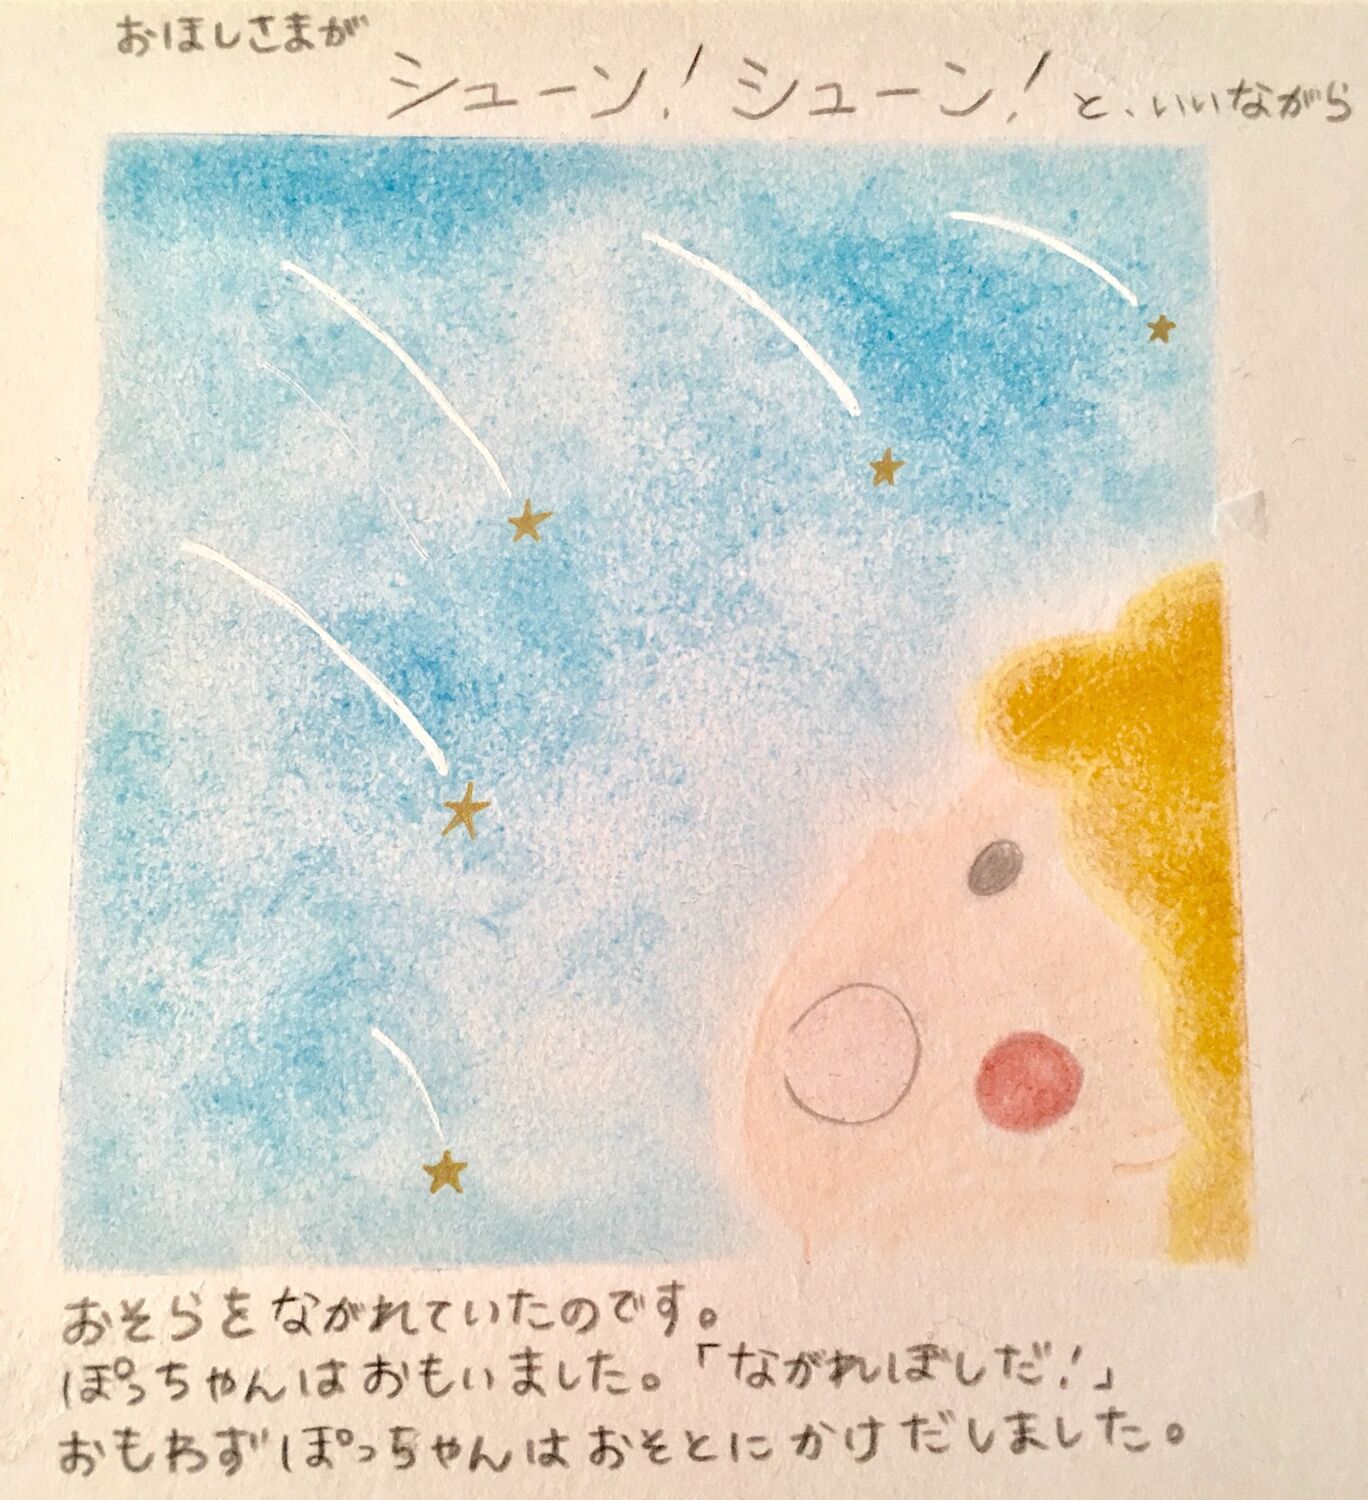 おほしさまが
シューン!シューン!と、いいながら
おそらをながれていたのです。
ぽっちゃんはおもいました。「ながれぼしだ!」
おもわずぽっちゃんはおそとにかけだしました。